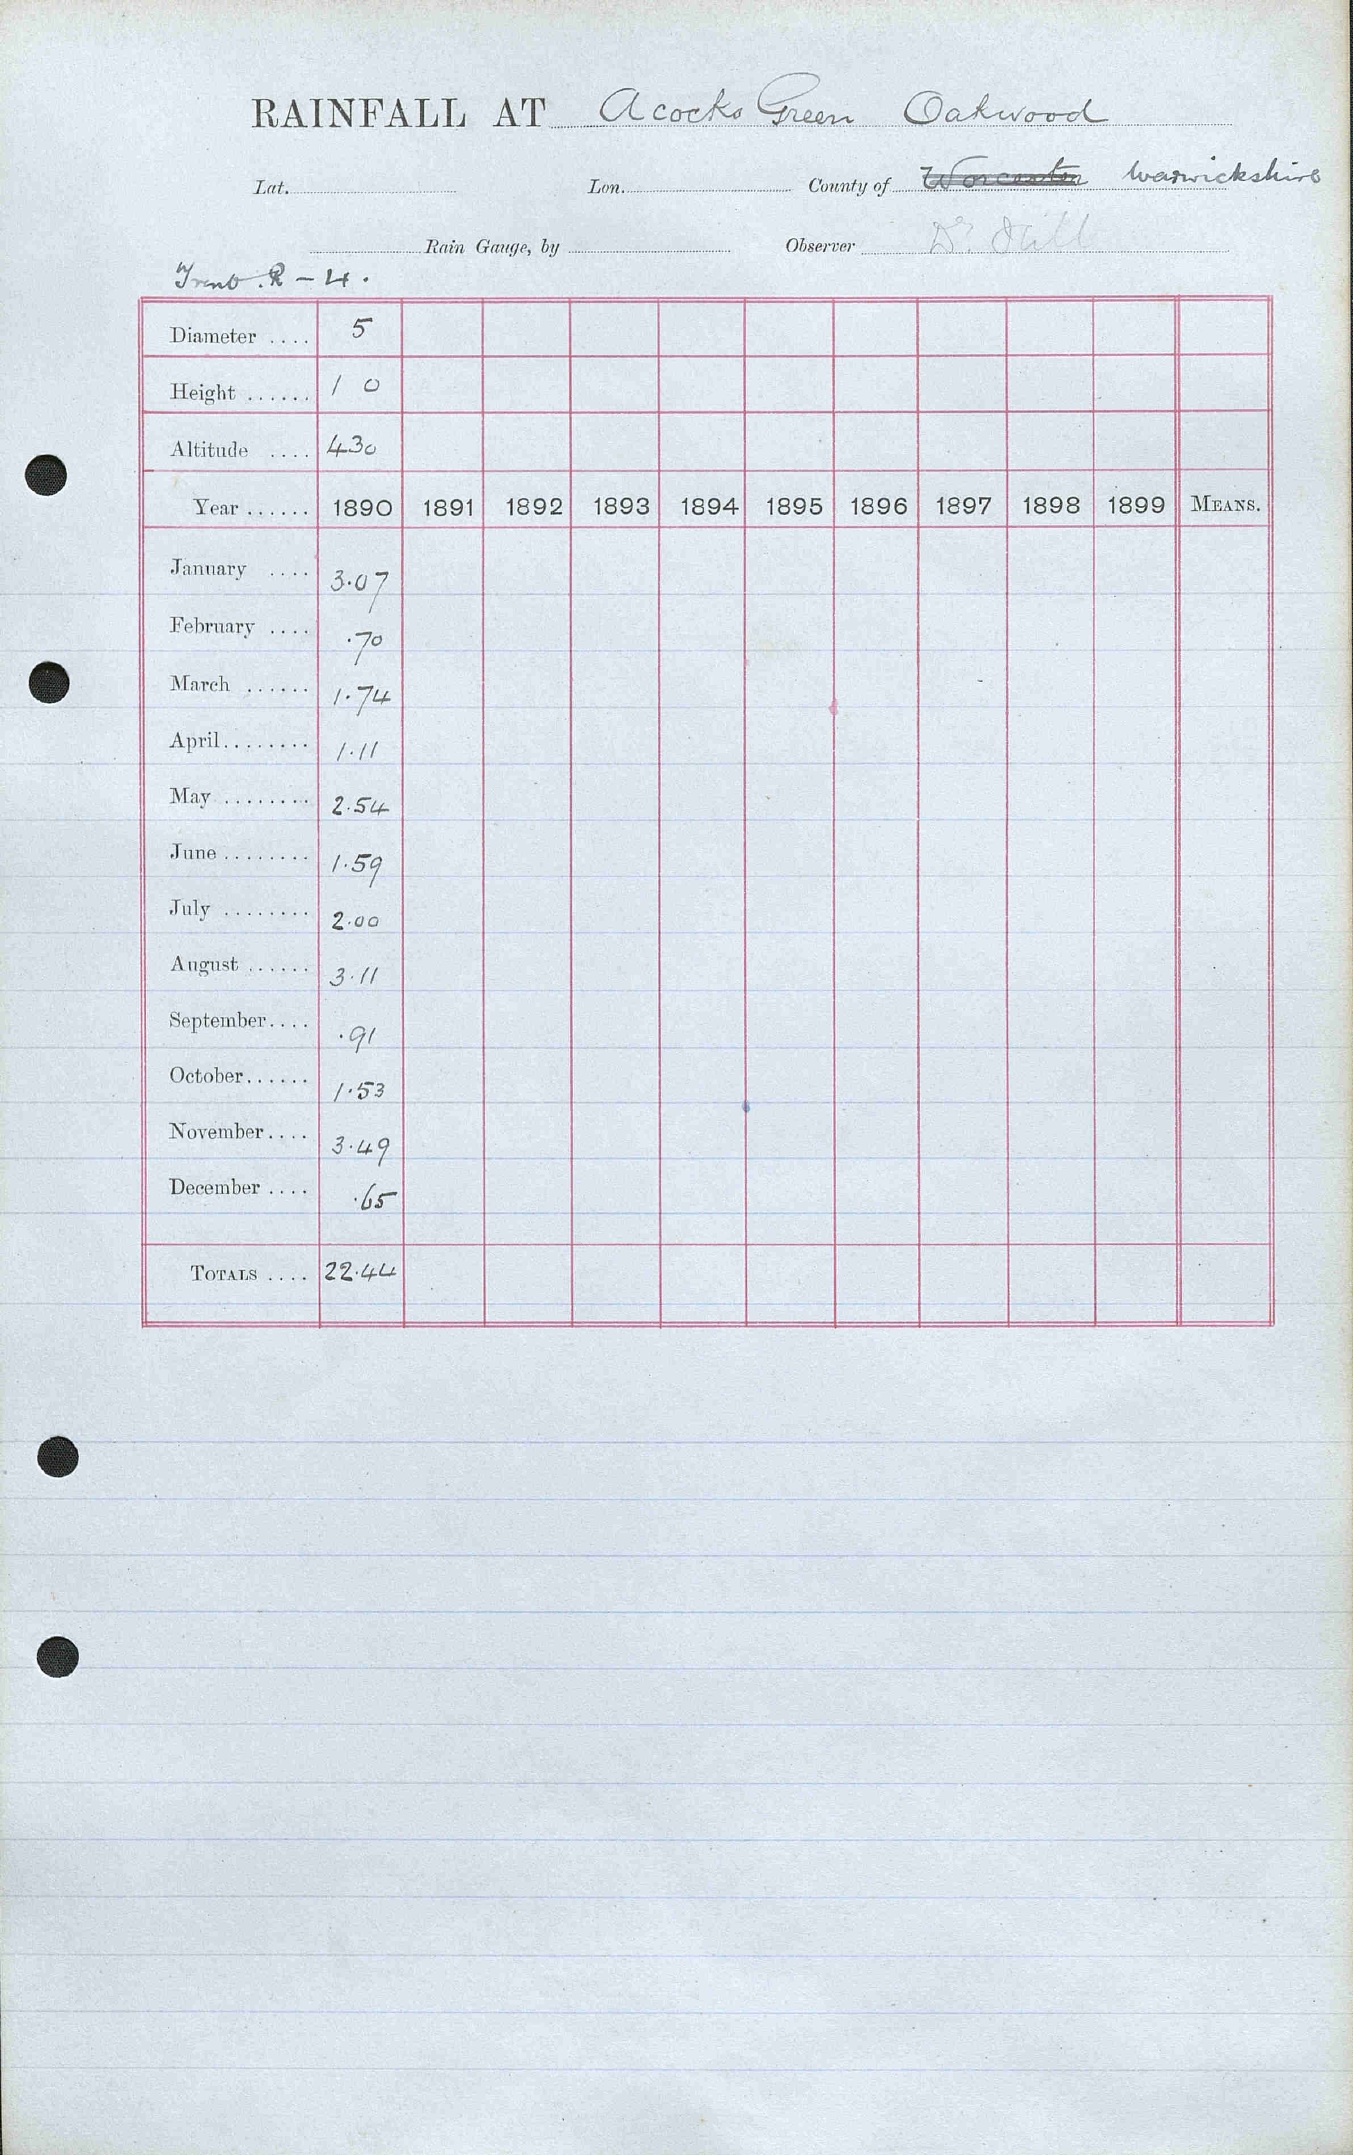 RAINFALL AT Acocks Green Oakwood
Lat. Lon. County of Worcester Warwickshire
Rain Gauge, by Observer Dr.
Trent R - 4.
Diameter .... 5
Height ...... 1 0
Altitude .... 430
Year ...... 1890 1891 1892 1893 1894 1895 1896 1897 1898 1899 MEANS.
January .... 3.07
February .... .70
March ...... 1.74
April........ 1.11
May ........ 2.54
June ........ 1.59
July ........ 2.00
August ...... 3.11
September.... .91
October...... 1.53
November.... 3.49
December .... .65
TOTALS .... 22.44